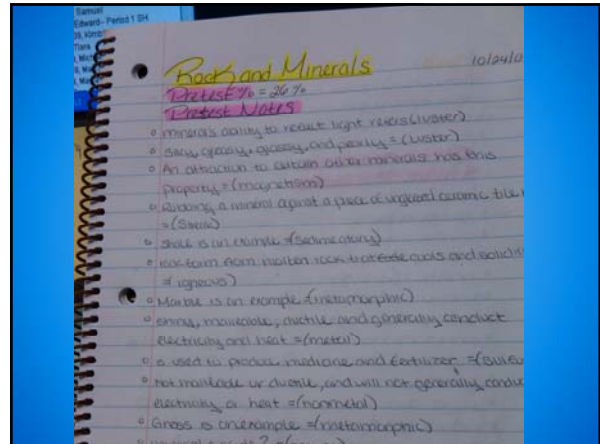 Samuel
Edward- Period 1 SH
Tiara
Rock and Minerals
10/24/0
Pretest % = 26%
Pretest Notes
minerals ability to reflect light refers (luster)
glassy, and pearly = (Luster)
An attraction to certain other minerals has this
property = (magnetism)
Rubbing a mineral against a piece of unglazed ceramic tile
= (Streak)
Shale is an example = (sedimentary)
rock form from molten rock that cools and solidi
= igneous)
Marble is an example = (metamorphic)
Shiny, malleable, ductile and generally conduct
electricity and heat = (metal)
is used to produce medicine and fertilizer = (Sulfu
Not malleable or ductile, and will not generally condu
electricity or heat = (nonmetal)
Gneiss is an example = (metamorphic)